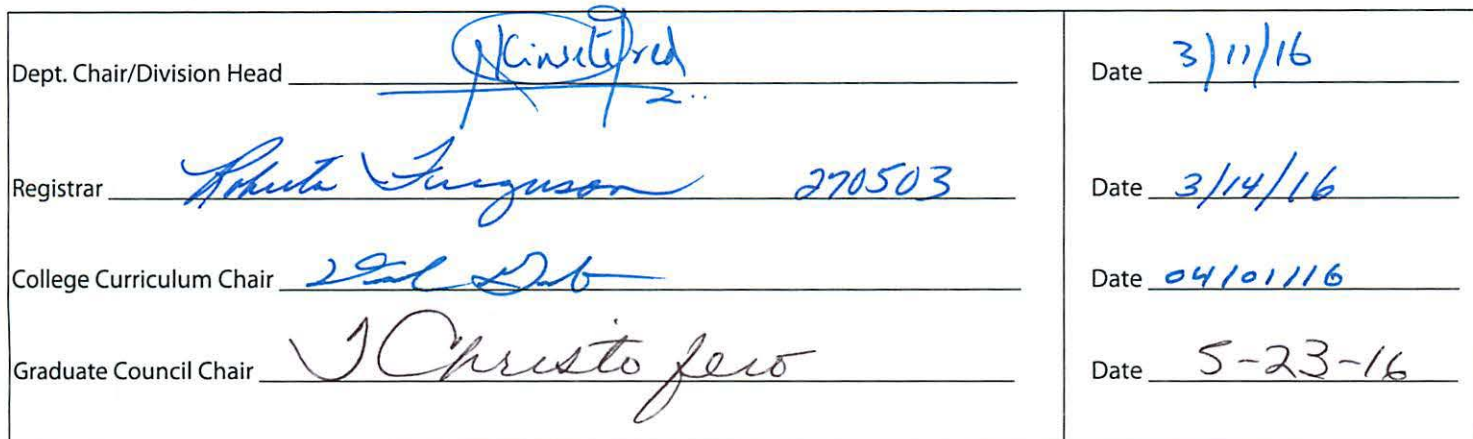 Dept. Chair/Division Head Date 3/11/16
Registrar Roberta Ferguson 270503 Date 3/14/16
College Curriculum Chair Date 04/01/16
Graduate Council Chair T Christofero Date 5-23-16